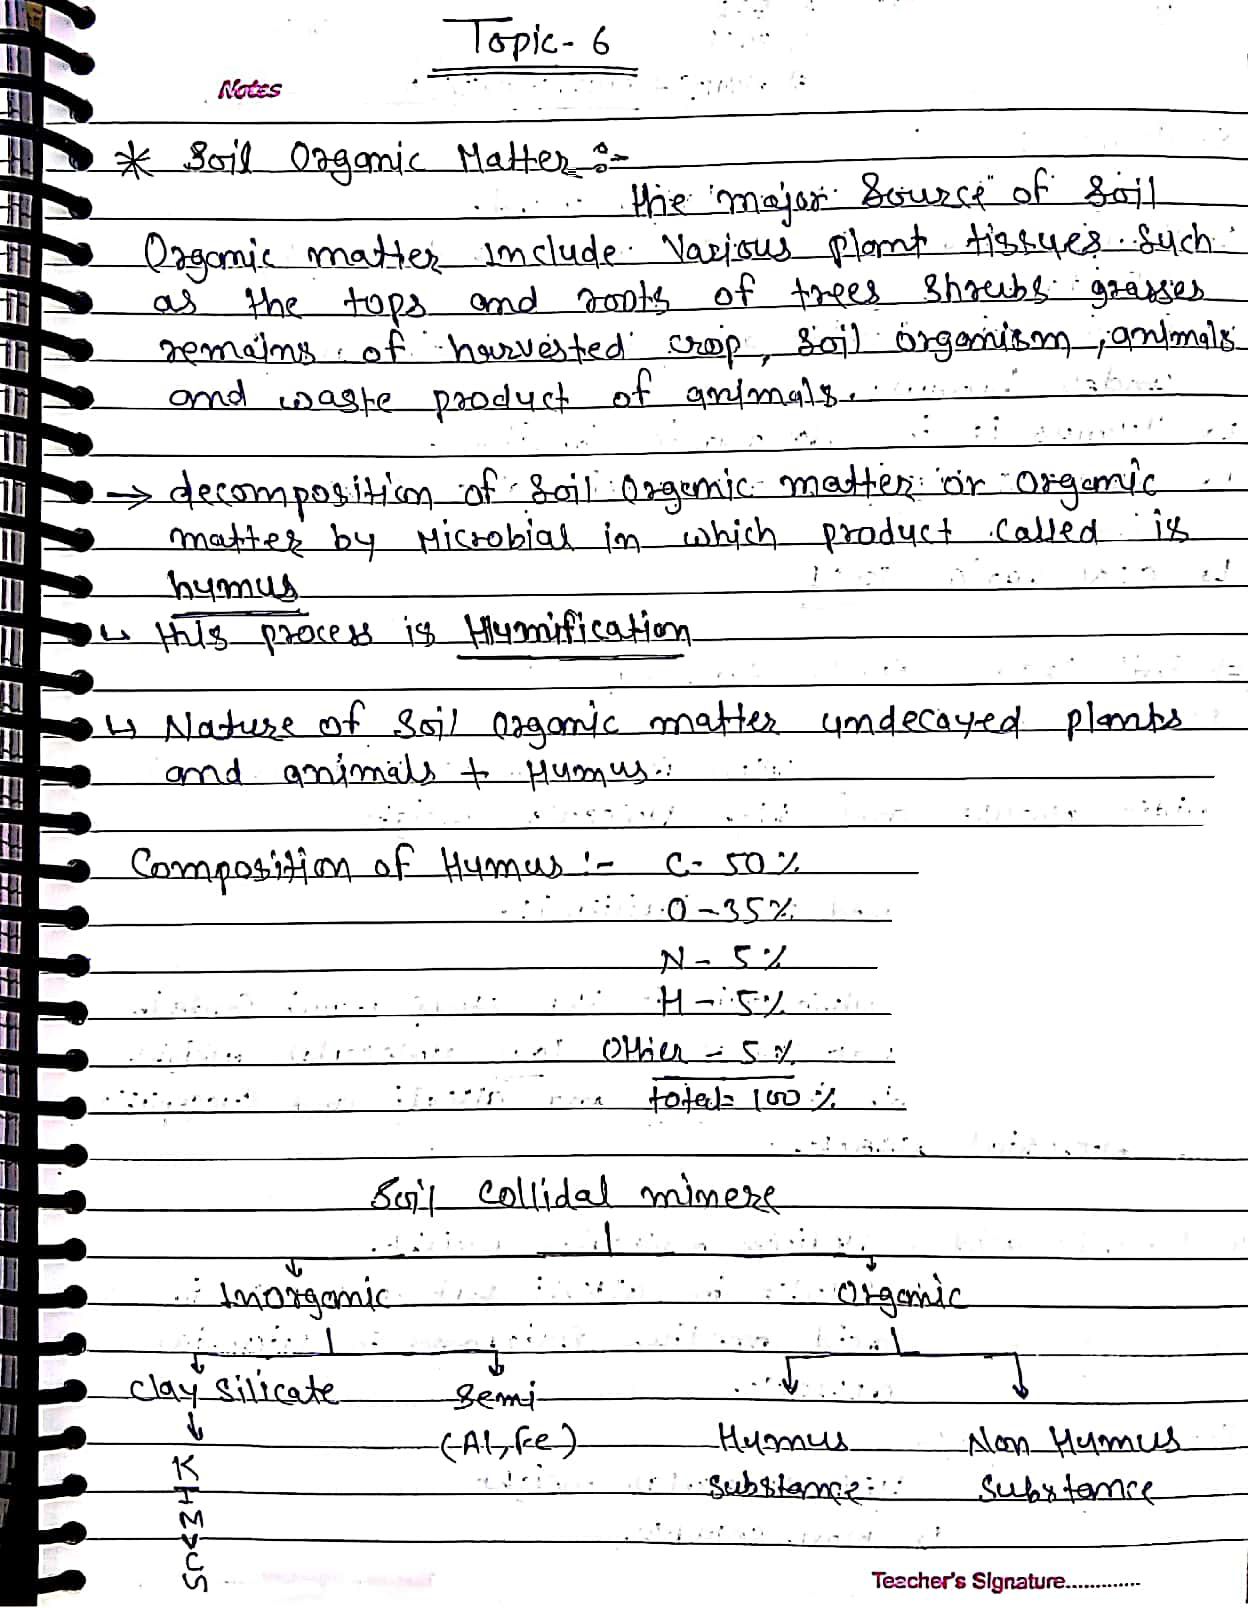 Topic - 6
Notes
* Soil Organic Matter :-
the major source of soil
Organic matter include various plant tissues such
as the tops and roots of trees shrubs grasses
remains of harvested crop, soil organism, animals
and waste product of animals.
→ decomposition of soil organic matter or organic
matter by Microbial in which product called is
humus
↳ this process is Humification
↳ Nature of soil organic matter undecayed plants
and animals + Humus.
Composition of Humus :- C - 50%
O - 35%
N - 5%
H - 5%
Other - 5%
total = 100%
Soil collidal minere
Inorganic Organic
Clay silicate Semi
(Al, Fe) Humus Non Humus
substance substance
K
I
M
V
C
S
Teacher's Signature.............